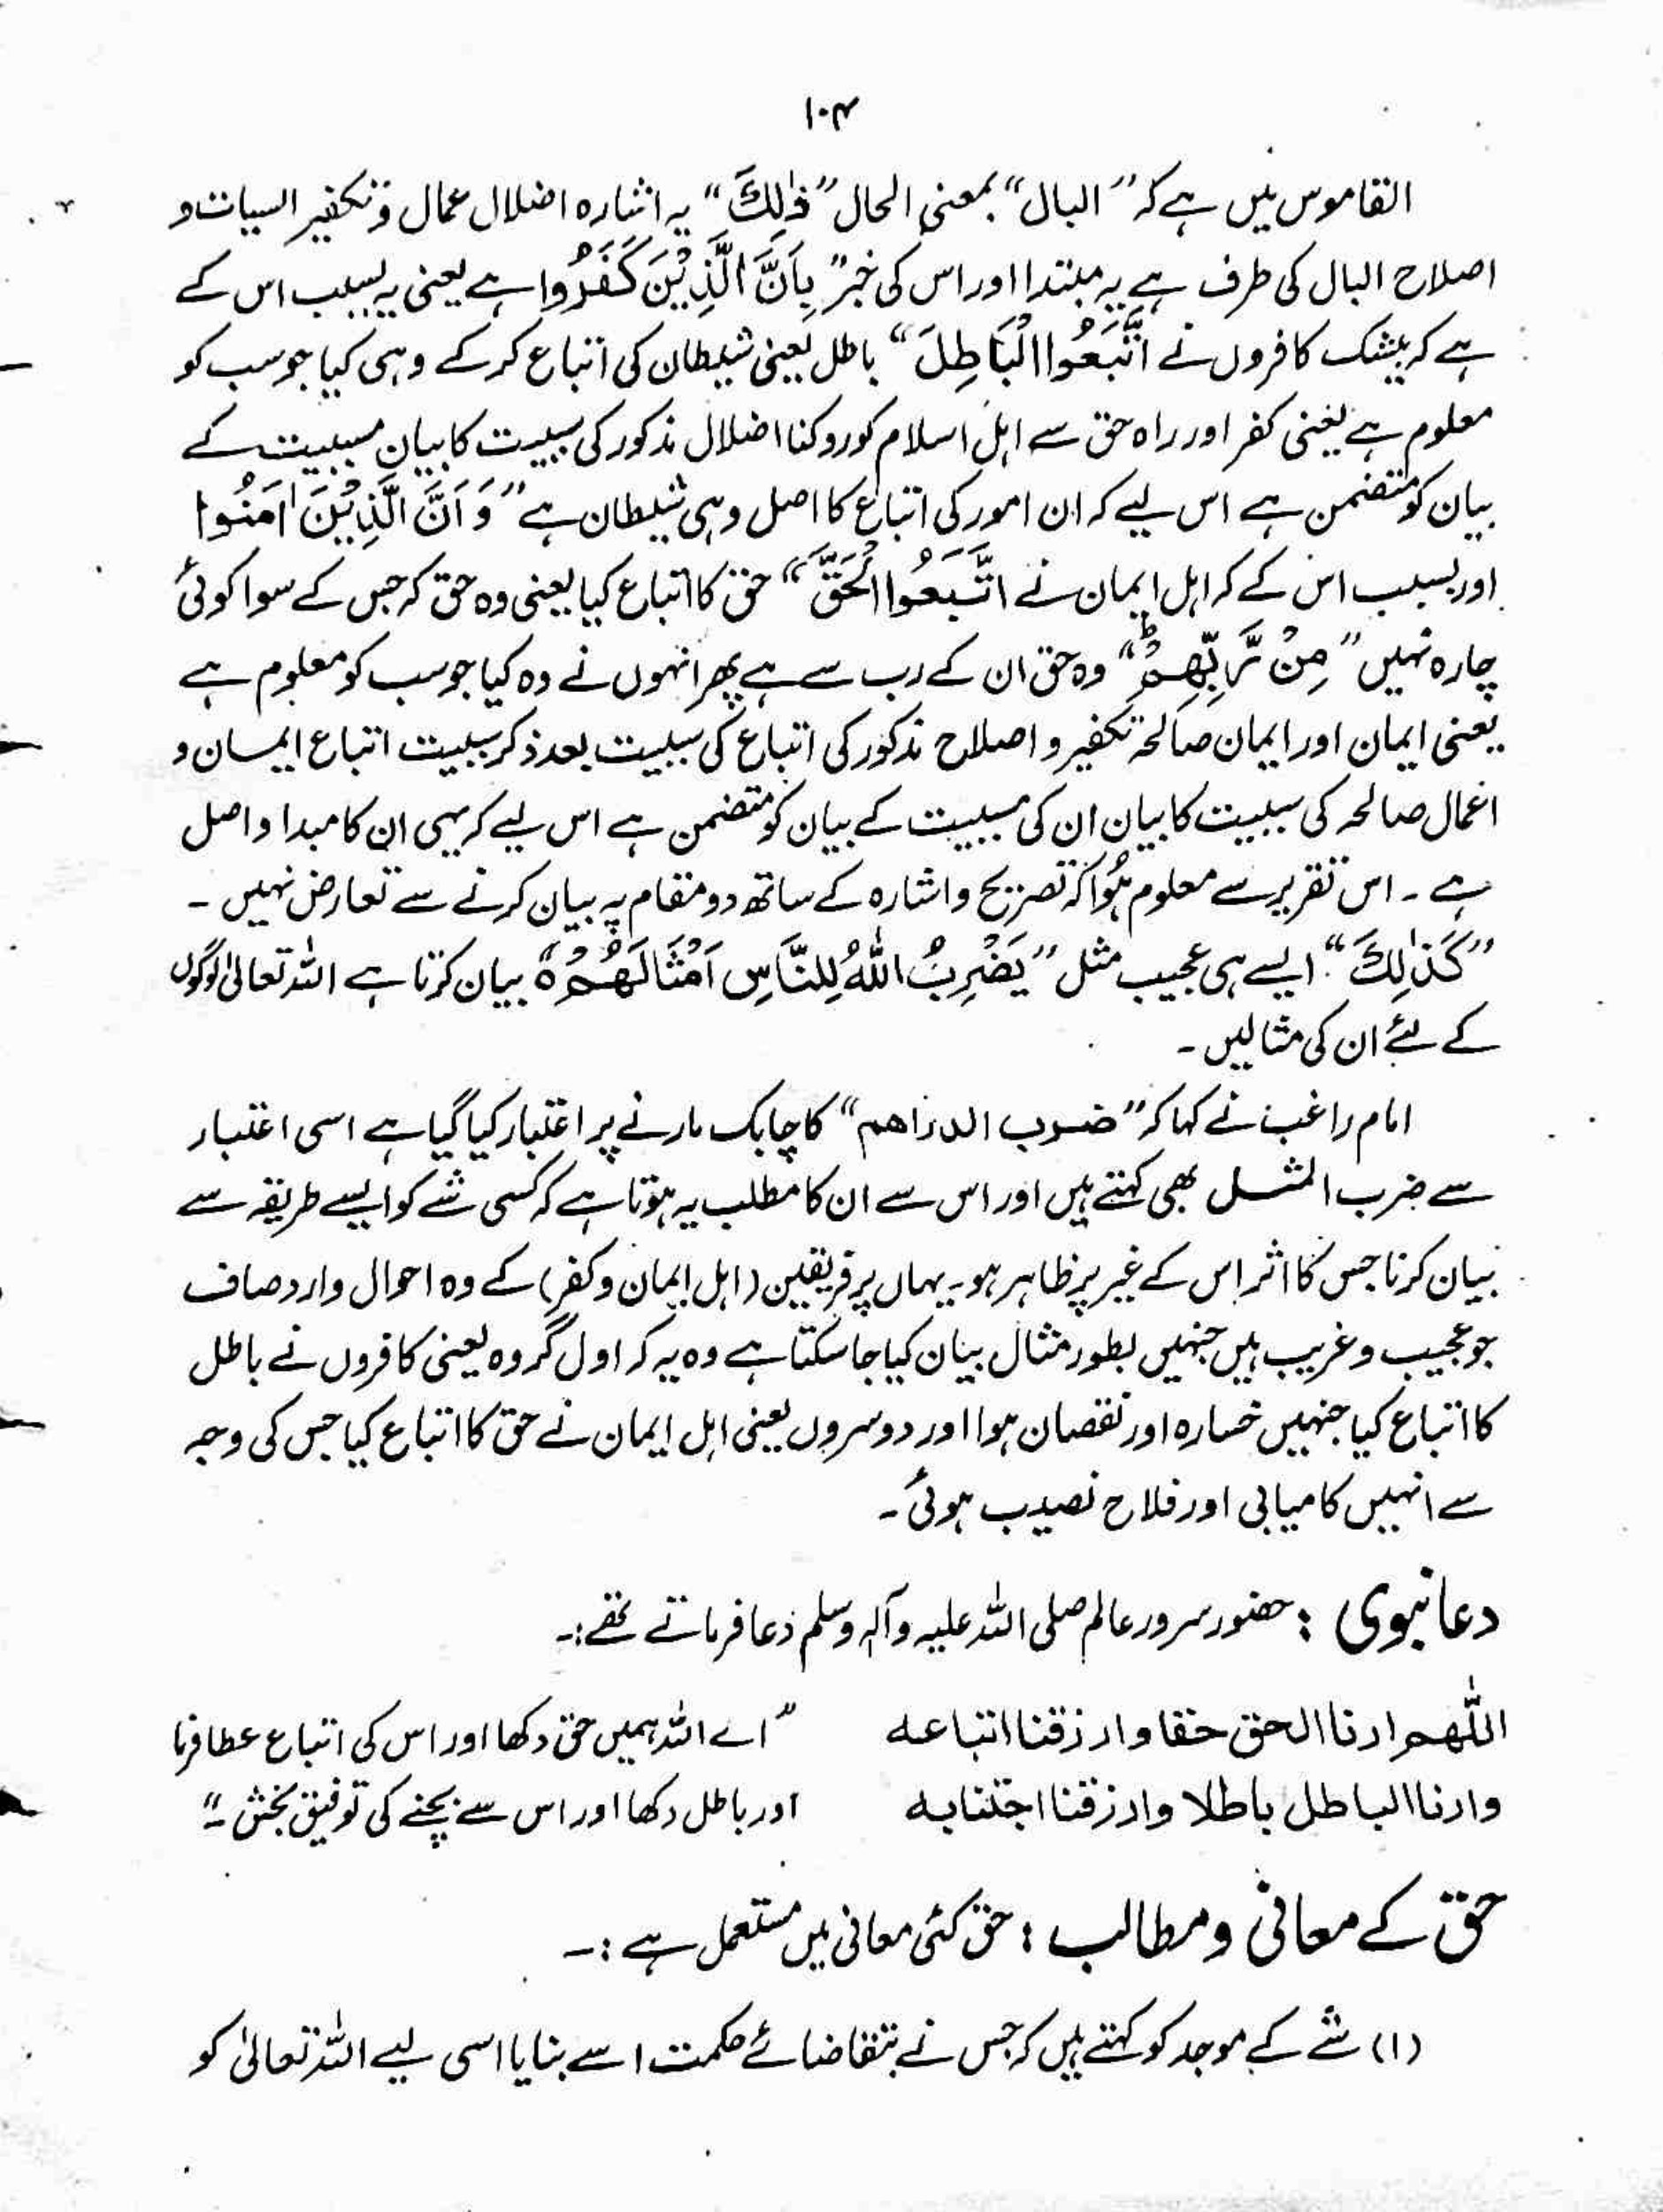 ۱۰۴
القاموس میں ہے کہ ”البال“ بمعنی الحال ”ذٰلِكَ“ یہ اشارہ اضلال عمال و تکفیر السیات و
اصلاح البال کی طرف ہے یہ مبتدا اور اس کی خبر ”بِاَنَّ الَّذِيْنَ كَفَرُوا ہے یعنی یہ بسبب اس کے
ہے کہ بیشک کافروں نے اتَّبَعُوا الْبَاطِلَ“ باطل یعنی شیطان کی اتباع کر کے وہی کیا جو سب کو
معلوم ہے یعنی کفر اور راہ حق سے اہل اسلام کو روکنا اضلال مذکور کی سببیت کا بیان مسببیت کے
بیان کو متضمن ہے اس لیے کہ ان امور کی اتباع کا اصل وہی شیطان ہے ”وَ اَنَّ الَّذِيْنَ اٰمَنُوا
اور بسبب اس کے کہ اہل ایمان نے اتَّبَعُوا الْحَقَّ“ حق کا اتباع کیا یعنی وہ حق کہ جس کے سوا کوئی
چارہ نہیں ”مِنْ رَّبِّهِمْ ؕ“ وہ حق ان کے رب سے ہے پھر انہوں نے وہ کیا جو سب کو معلوم ہے
یعنی ایمان اور ایمان صالحہ تکفیر و اصلاح مذکور کی اتباع کی سببیت بعد ذکر سببیت اتباع ایمان و
اعمال صالحہ کی سببیت کا بیان ان کی مسببیت کے بیان کو متضمن ہے اس لیے کہ یہی ان کا مبدا و اصل
ہے ۔ اس تقریر سے معلوم ہوٗا کہ تصریح و اشارہ کے ساتھ دو مقام پہ بیان کرنے سے تعارض نہیں ۔
”كَذٰلِكَ“ ایسے ہی عجیب مثل ”يَضْرِبُ اللّٰهُ لِلنَّاسِ اَمْثَالَهُمْ ہ بیان کرتا ہے اللہ تعالیٰ لوگوں
کے لئے ان کی مثالیں ۔
امام راغب نے کہا کہ ”ضرب الدراهم“ کا چابک مارنے پر اعتبار کیا گیا ہے اسی اعتبار
سے ضرب المثل بھی کہتے ہیں اور اس سے ان کا مطلب یہ ہوتا ہے کہ کسی شے کو ایسے طریقہ سے
بیان کرنا جس کا اثر اس کے غیر پر ظاہر ہو ۔ یہاں پر فریقین (اہل ایمان و کفر) کے وہ احوال وارد صاف
جو عجیب و غریب ہیں جنہیں بطور مثال بیان کیا جا سکتا ہے وہ یہ کہ اول گروہ یعنی کافروں نے باطل
کا اتباع کیا جنہیں خسارہ اور نقصان ہوا اور دوسروں یعنی اہل ایمان نے حق کا اتباع کیا جس کی وجہ
سے انہیں کامیابی اور فلاح نصیب ہوئی ۔
دعا نبوی : حضور سرور عالم صلی اللہ علیہ وآلہ وسلم دعا فرماتے تھے :۔
اللّٰهم ارنا الحق حقا وارزقنا اتباعه ”اے اللہ ہمیں حق دکھا اور اس کی اتباع عطا فرما
وارنا الباطل باطلا وارزقنا اجتنابه اور باطل دکھا اور اس سے بچنے کی توفیق بخش ۔“
حق کے معانی و مطالب : حق کئی معانی میں مستعمل ہے :۔
(۱) شے کے موجد کو کہتے ہیں کہ جس نے بتقاضائے حکمت اسے بنایا اسی لیے اللہ تعالیٰ کو